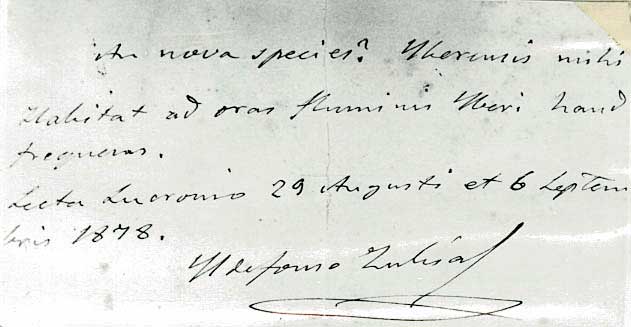 An nova species? Yberensis mihi
Habitat ad oras fluminis Yberi haud
frequens.
Lecta Lucronio 29 Augusti et 6 Septem
bris 1878.
Yldefonso Zubía